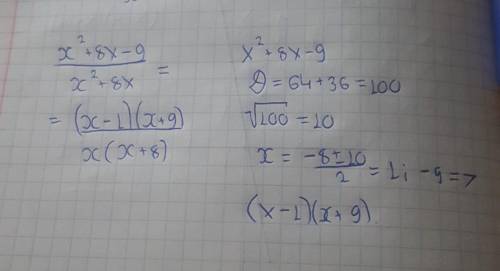 x²+8x-9
x²+8x =
= (x-1)(x+9)
x(x+8)
x²+8x-9
D = 64+36=100
√100 = 10
x = -8±10 / 2 = 1; -9 =>
(x-1)(x+9)